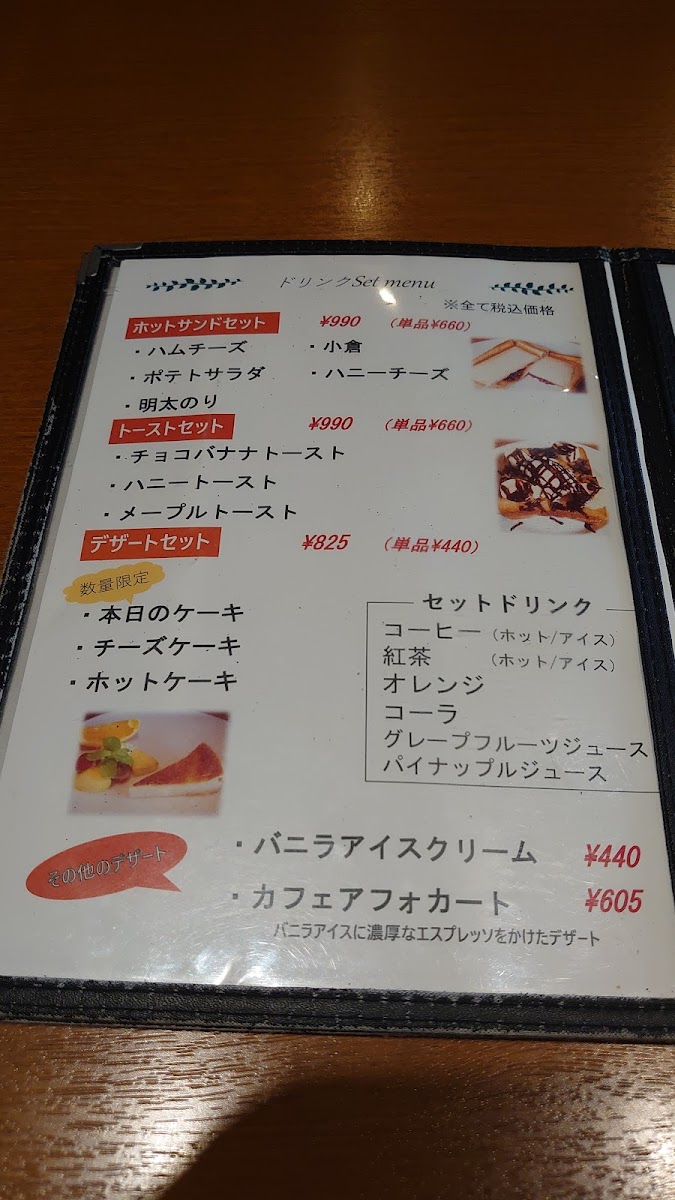 ドリンクSet menu
※全て税込価格
ホットサンドセット ¥990 (単品¥660)
・ハムチーズ ・小倉
・ポテトサラダ ・ハニーチーズ
・明太のり
トーストセット ¥990 (単品¥660)
・チョコバナナトースト
・ハニートースト
・メープルトースト
デザートセット ¥825 (単品¥440)
数量限定
・本日のケーキ
・チーズケーキ
・ホットケーキ
セットドリンク
コーヒー(ホット/アイス)
紅茶 (ホット/アイス)
オレンジ
コーラ
グレープフルーツジュース
パイナップルジュース
その他のデザート
・バニラアイスクリーム ¥440
・カフェアフォカート ¥605
バニラアイスに濃厚なエスプレッソをかけたデザート